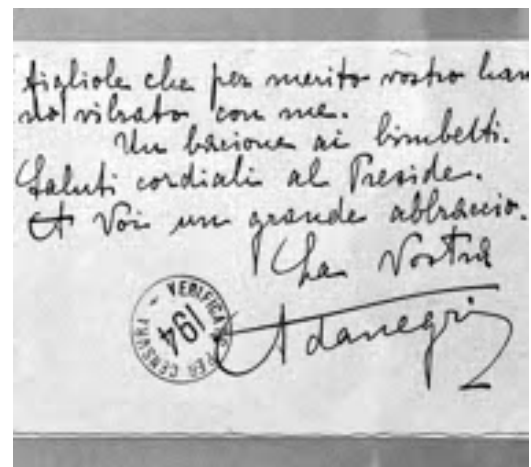 figliole che per merito vostro han
no vibrato con me.
Un bacione ai bimbetti.
Saluti cordiali al Preside.
A Voi un grande abbraccio.
La Vostra
Adanegri
VERIFICATO PER CENSURA
194